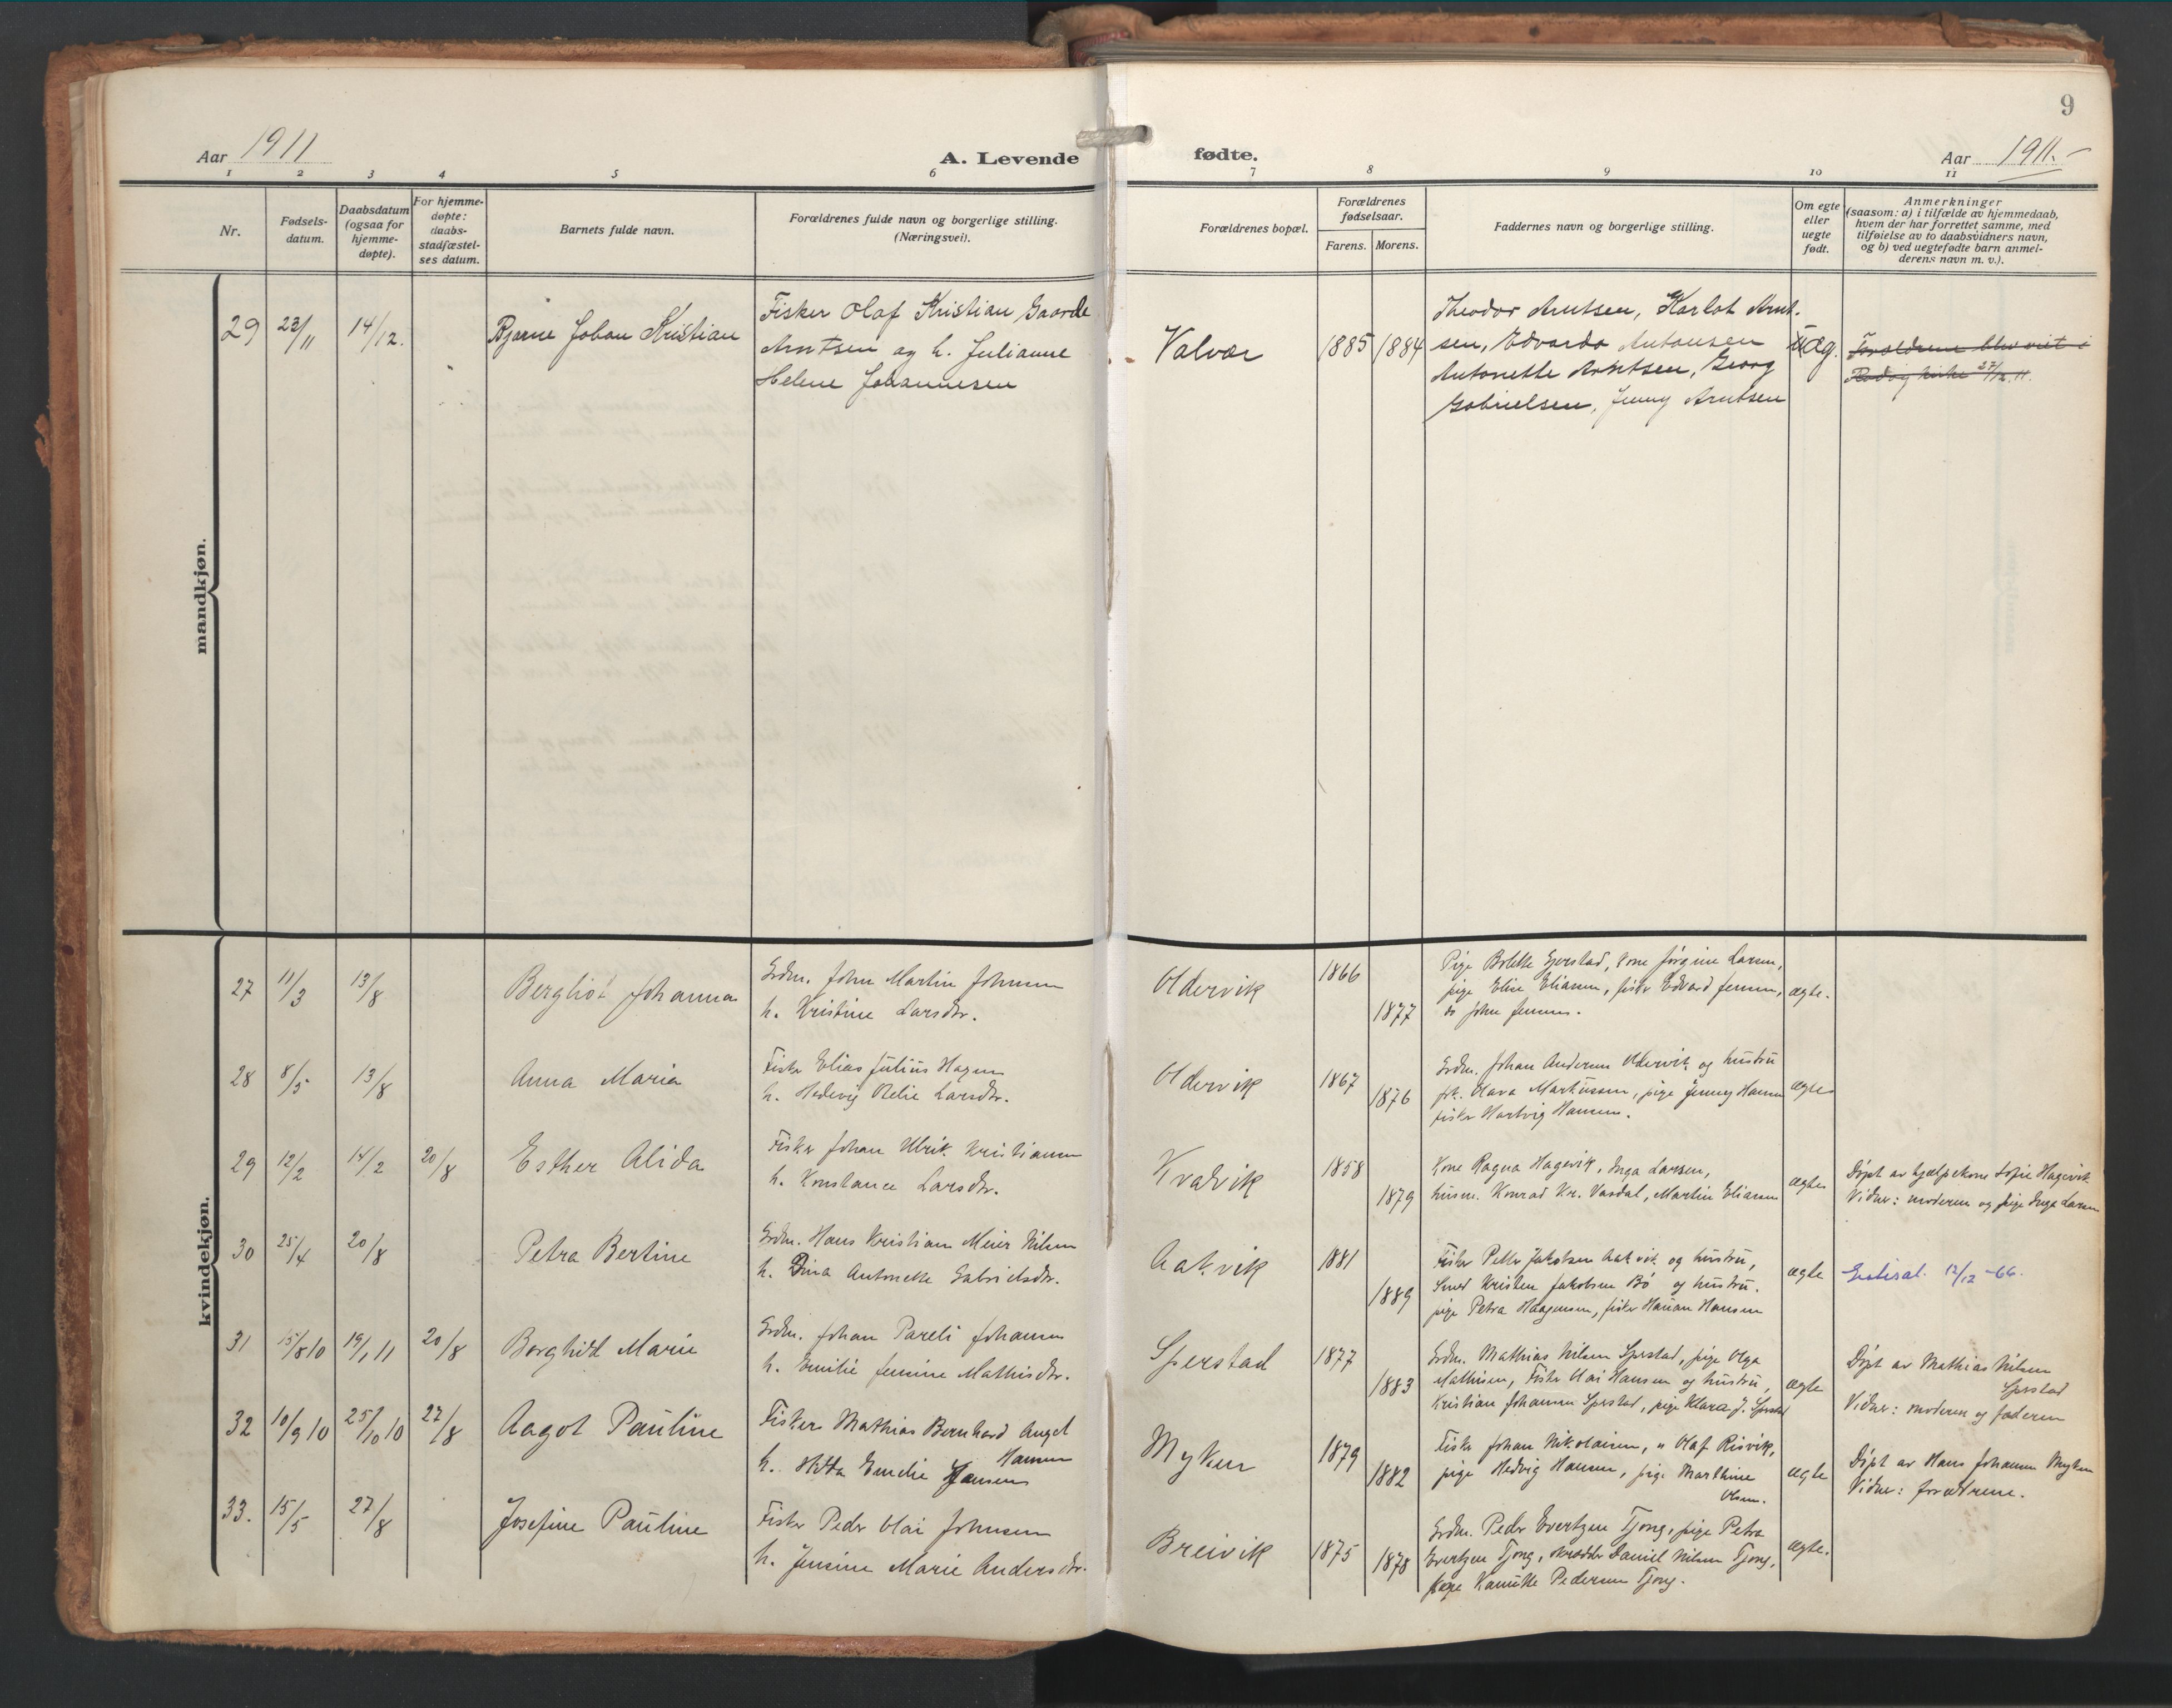 Aar 1911
A. Levende
fødte.
Aar 1911.
9
1 2 3 4 5 6 7 8 9 10 11
Nr.
Fødsels-
datum.
Daabsdatum
(ogsaa for
hjemme-
døpte).
For hjemme-
døpte:
daabs-
stadfæstel-
ses datum.
Barnets fulde navn.
Forældrenes fulde navn og borgerlige stilling.
(Næringsvei).
Forældrenes bopæl.
Forældrenes
fødselsaar.
Farens. Morens.
Faddernes navn og borgerlige stilling.
Om egte
eller
uegte
født.
Anmerkninger
(saasom: a) i tilfælde av hjemmedaab,
hvem der har forrettet samme, med
tilføielse av to daabsvidners navn,
og b) ved uegtefødte barn anmel-
derens navn m. v.).
mandkjøn.
29 23/11 14/12. Bjarne Johan Kristian
Fisker Olaf Kristian Gaarde
Arntsen og h. Julianne
Helene Johannesen
Valvær 1885 1884
Theodor Arntsen, Karlot Arnt-
sen, Edvarda Antonsen
Antonette Arntsen, Georg
Gabrielsen, Jenny Arntsen
Forældrene blev viet i
Rødøy kirke 27/12.11.
kvindekjøn.
27 11/3 13/8 Bergliot Johanna
Grdm. John Martin Johnsen
h. Kristine Larsdtr.
Oldervik 1866 1877
Pige Bolette Gjerstad, kone Jørgine Larsen,
pige Elise Eliassen, fisker Edvard Jensen,
do John Jensen.
ægte.
28 8/5 13/8 Anna Maria
Fisker Elias Julius Hagen
h. Hedevig Relie Larsdtr.
Oldervik 1867 1876
Grdm. Johan Andersen Oldervik og hustru
frk. Olava Markussen, pige Jenny Hansen
fisker Hartvig Hansen.
ægte
29 12/2 14/2 20/8 Esther Alida
Fisker Johan Ulrik Kristiansen
h. Konstance Larsdtr.
Kvalvik 1858 1879
Kone Ragna Hagevik, Inga Larsen,
husm. Konrad Kr. Vasdal, Martin Eliassen
ægte
Døpt av hjælpekone Sofie Hagevik
Vidner: moderen og pige Inga Larsen
30 25/4 20/8 Petra Bertine
Grdm. Hans Kristian Meier Nilsen
h. Dina Antonette Gabrielsdtr.
Aakvik 1881 1889
Fisker Petter Jakobsen Aakvik og hustru,
Smed Kristen Jakobsen Bø og hustru.
pige Petra Haagensen, fisker Hansen
ægte
12/12-66.
31 15/8 10 19/1 11 20/8 Borghild Marie
Grdm. Johan Pareli Johansen
h. Emilie Jensine Mathisdtr.
Sperstad 1877 1883
Grdm. Mathias Nilsen Sperstad, pige Olga
Mathisen, Fisker Olai Hansen og hustru,
Kristian Johansen Sperstad, pige Klara J. Sperstad
ægte
Døpt av Mathias Nilsen
Sperstad
Vidner: moderen og faderen
32 10/9 10 25/10 10 27/8 Aagot Pauline
Fisker Mathias Bernhard Angel
Hansen
h. Hilda Emelie Hansen
Myken 1879 1882
Fisker Johan Nikolaisen, " Olaf Risvik,
pige Hedvig Hansen, pige Marthine
Olsen.
ægte
Døpt av Hans Johansen Myken
Vidner: forældrene.
33. 15/5 27/8 Josefine Pauline
Fisker Peder Olai Johnsen
h. Jensine Marie Andersdtr.
Breivik 1875 1878
Grdm. Peder Evertzen Tjong, pige Petra
Evertzen Tjong, skrædder Daniel Nilsen Tjong,
pige Kamille Pedersen Tjong.
ægte.